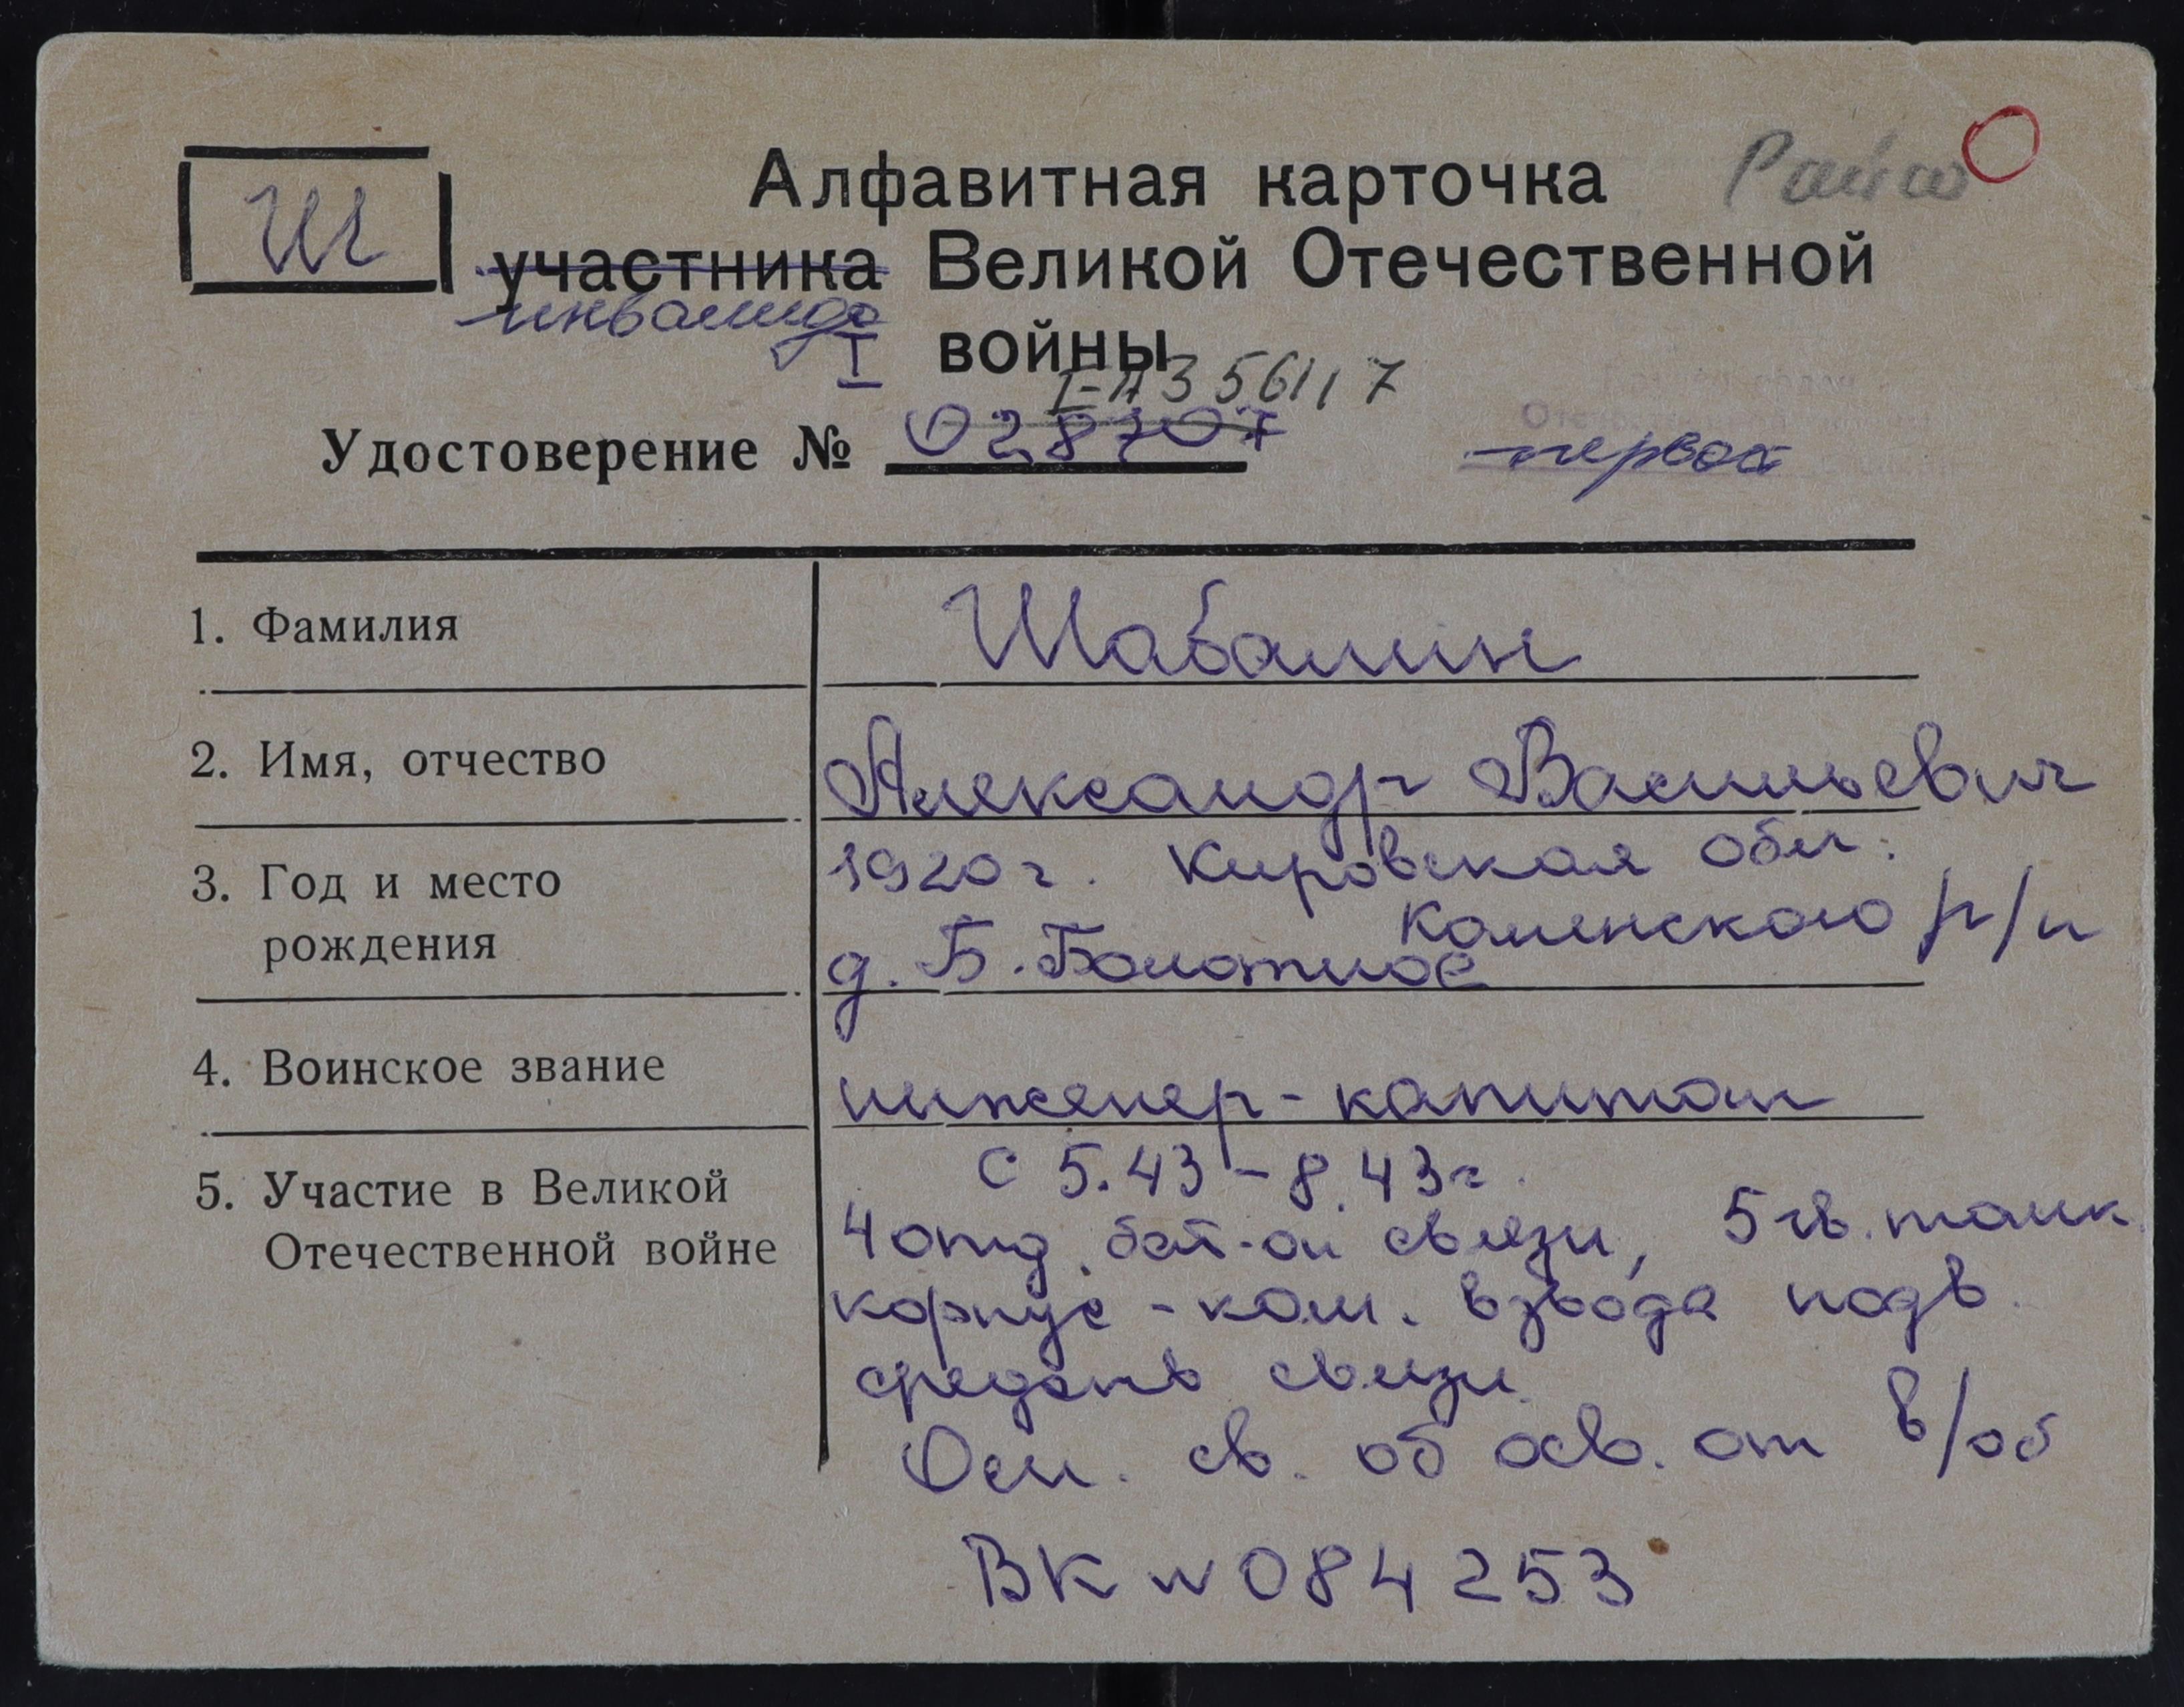 Алфавитная карточка
Ш участника Великой Отечественной
инвалида
I войны
I-А 356117
Удостоверение № 028707 первая
1. Фамилия Шабалин
2. Имя, отчество Александр Васильевич
3. Год и место 1920 г. Кировская обл.
Каменского р/н
рождения д. Б. Болотное
4. Воинское звание инженер-капитан
с 5.43-8.43г.
5. Участие в Великой 4 отд. бат-он связи, 5 гв. танк.
Отечественной войне корпус - ком. взвода подв.
средств связи
Осн. св. об осв. от в/об
ВК N 084253